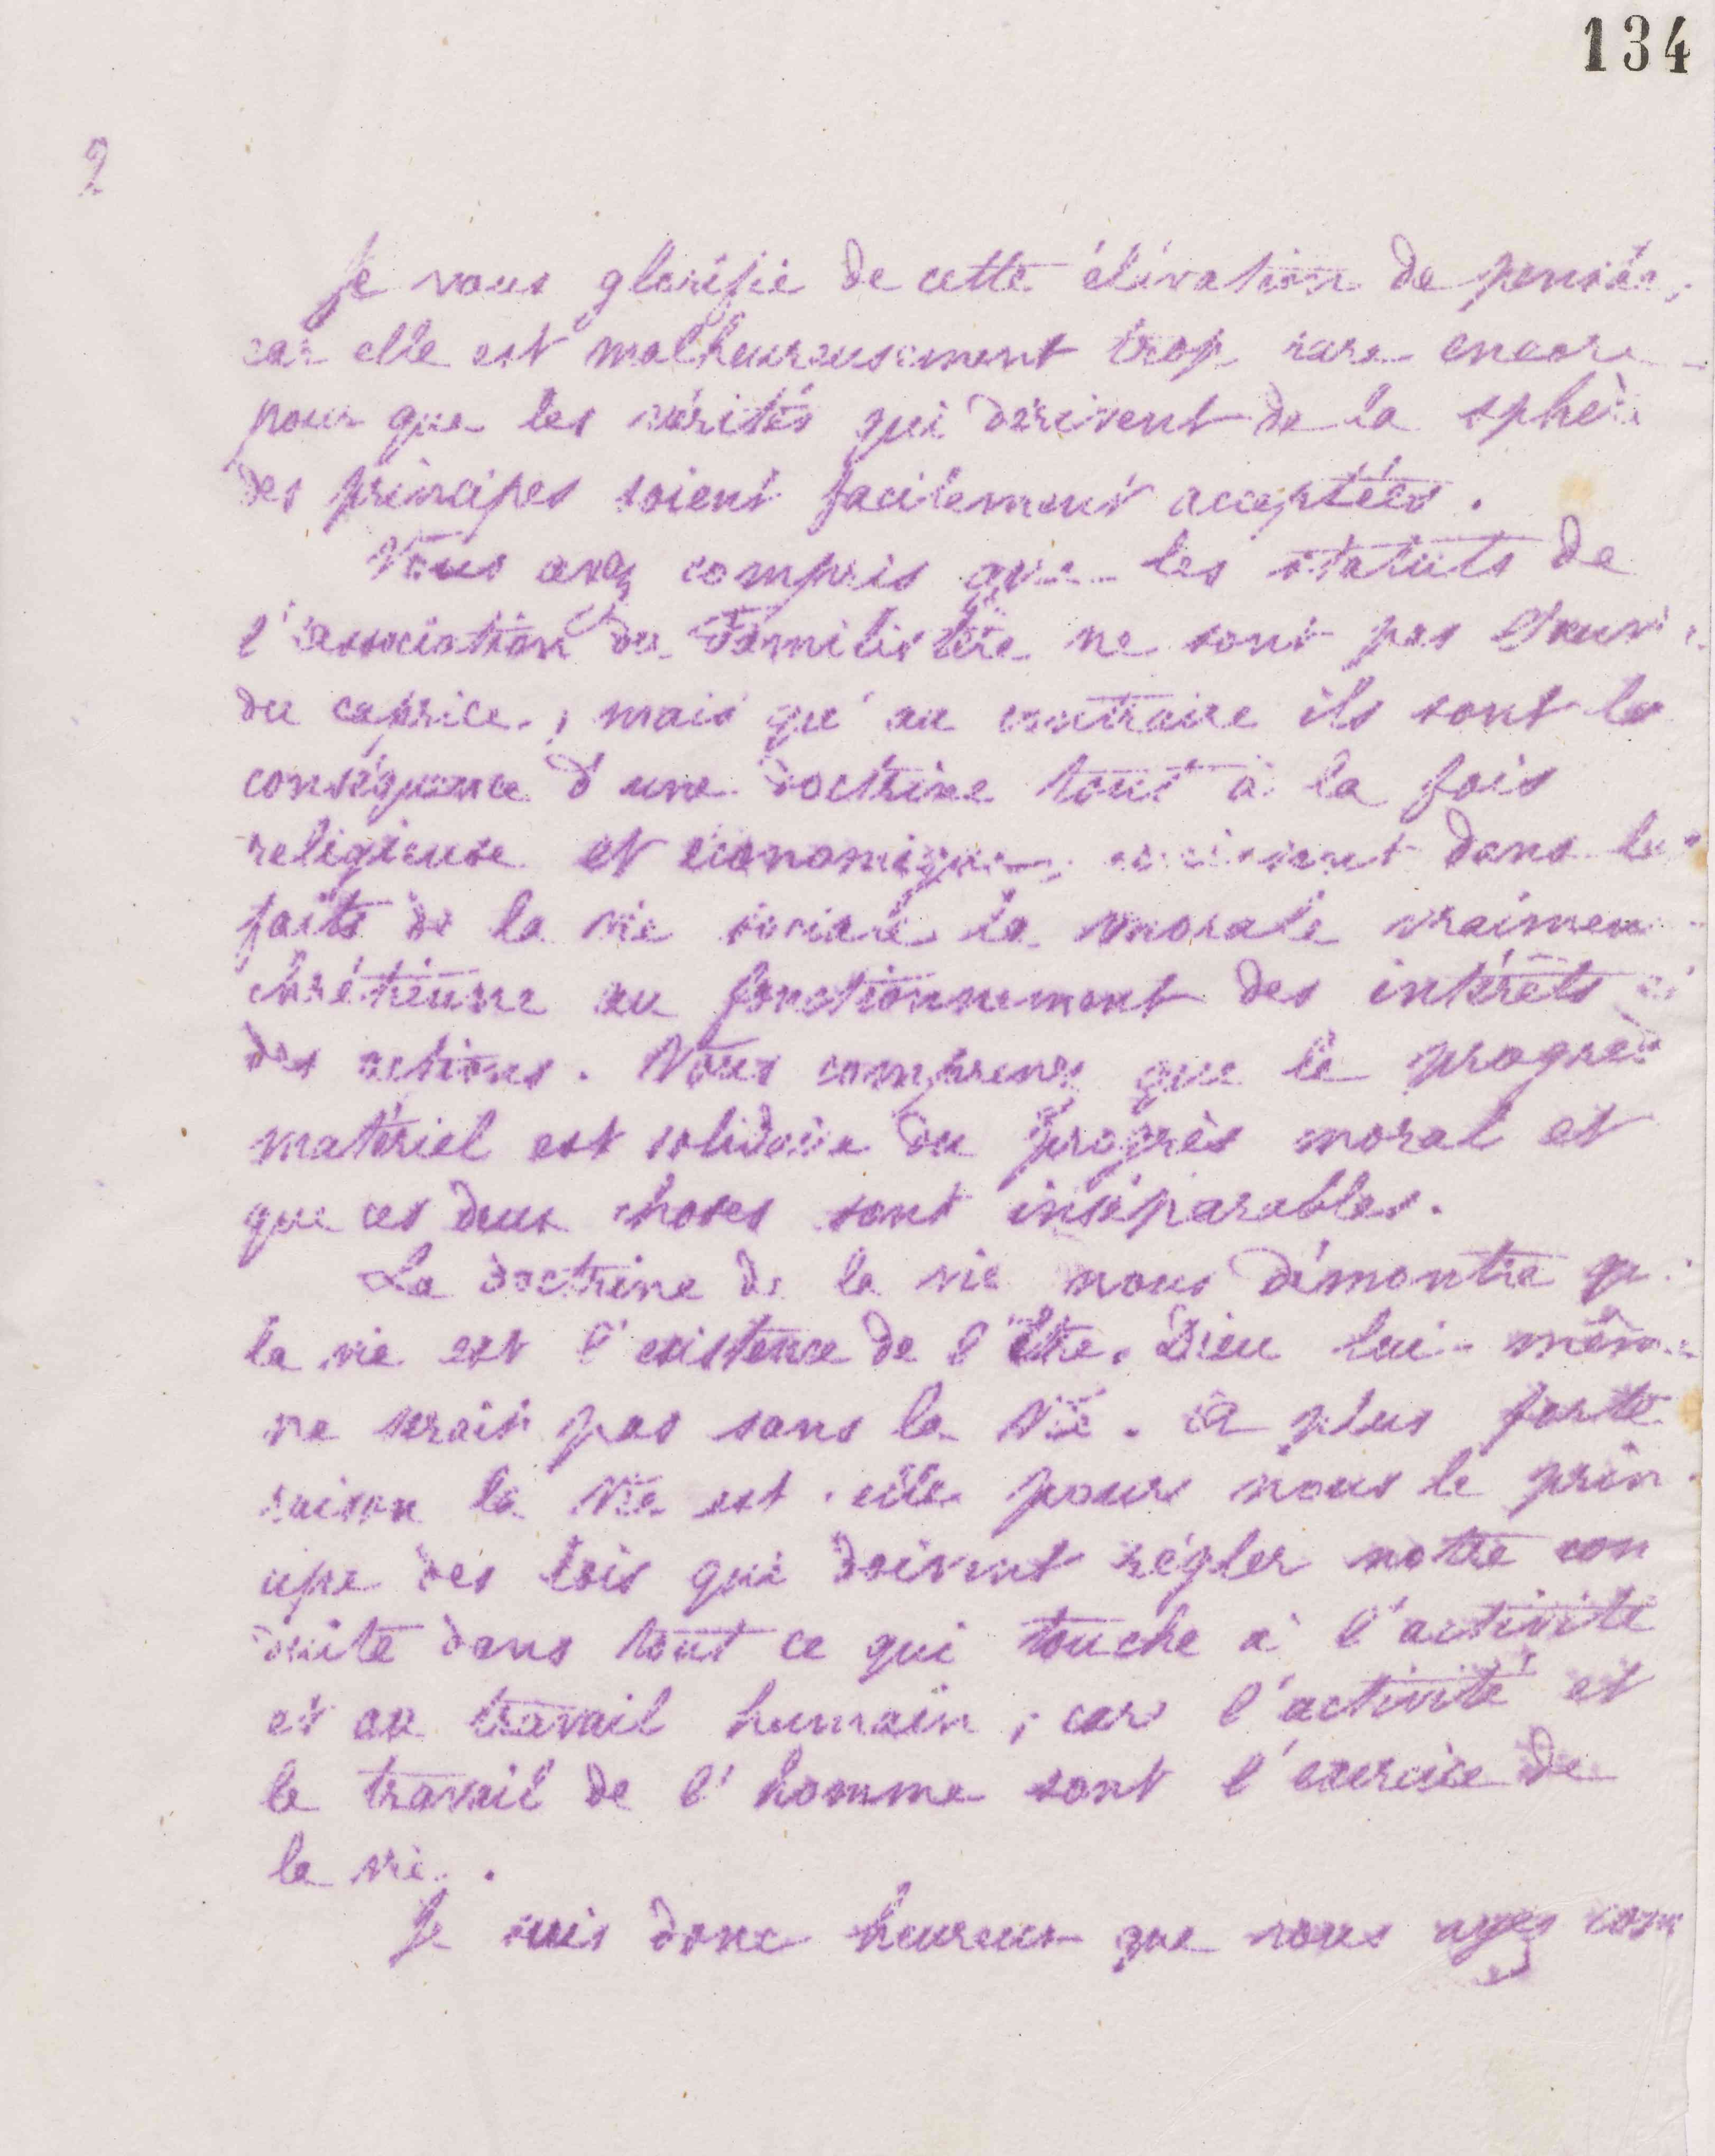 134
2
Je vous glorifie de cette élévation de pensée,
car elle est malheureusement trop rare encore
pour que les vérités qui dérivent de la sphère
des principes soient facilement acceptées.
Vous avez compris que les statuts de
l'association du Familistère ne sont pas l'œuvre
du caprice, mais qu'au contraire ils sont la
conséquence d'une doctrine tout à la fois
religieuse et économique, dans les
faits de la vie sociale la morale vraiment
chrétienne au fonctionnement des intérêts et
des actions. Vous comprenez que le progrès
matériel est solidaire du progrès moral et
que ces deux choses sont inséparables.
La doctrine de la vie nous démontre que
la vie est l'existence de l'être. Dieu lui-même
ne serait pas sans la vie. à plus forte
raison la vie est-elle pour nous le prin
cipe des lois qui doivent régler notre con
duite dans tout ce qui touche à l'activité
et au travail humain ; car l'activité et
le travail de l'homme sont l'exercice de
la vie.
Je suis donc heureux que vous ayez com